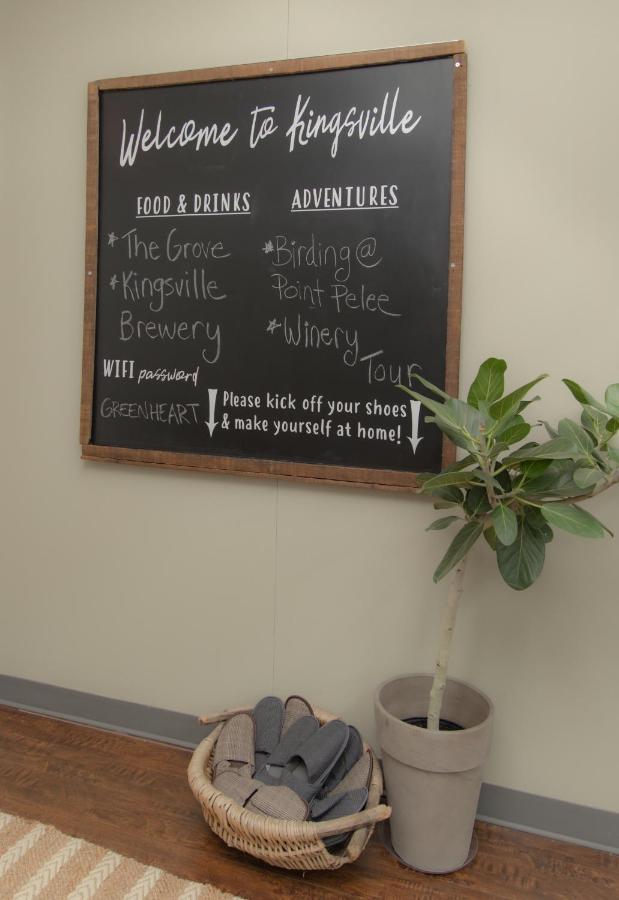 Welcome to Kingsville
FOOD & DRINKS
* The Grove
* Kingsville
Brewery
ADVENTURES
* Birding @
Point Pelee
* Winery
Tour
WIFI password
GREENHEART
Please kick off your shoes
& make yourself at home!